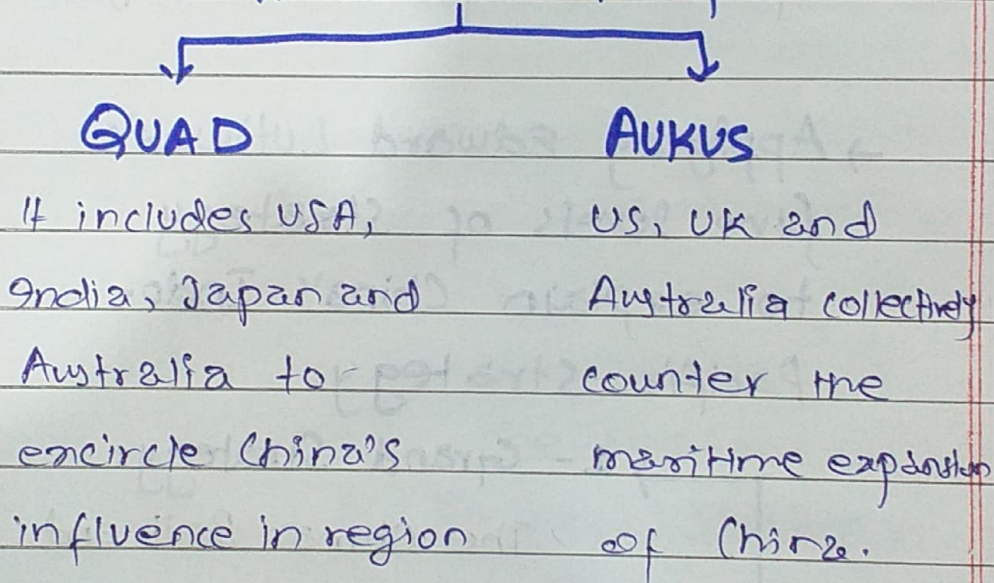 QUAD
It includes USA,
India, Japan and
Australia to
encircle China's
influence in region
AUKUS
US, UK and
Australia collectively
counter the
maritime expansion
of China.